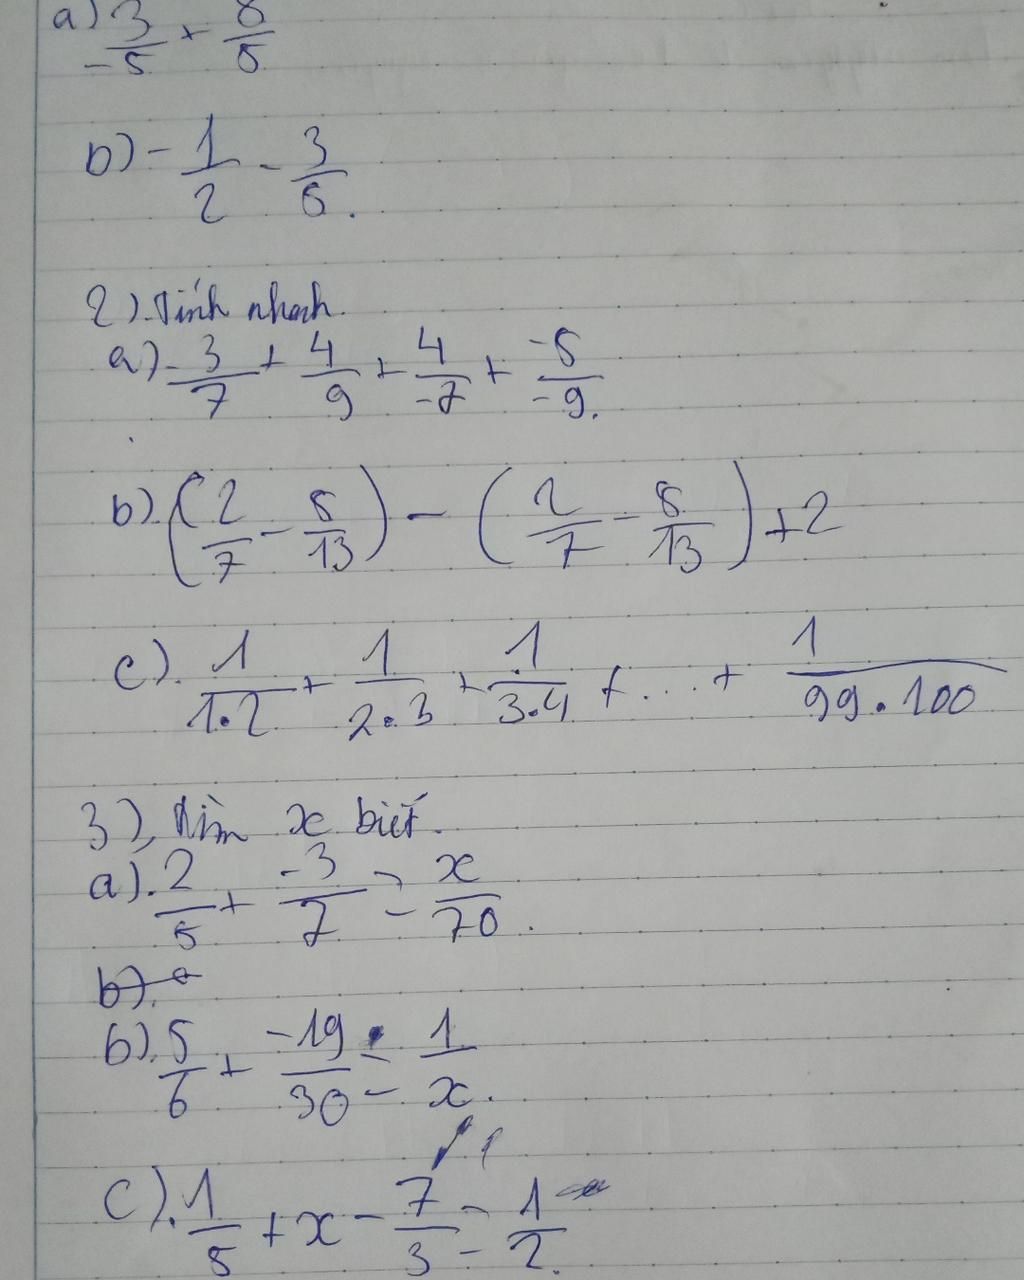 a) 3/-5 + 8/5
b) - 1/2 - 3/5.
2). Tính nhanh.
a) -3/7 + 4/9 + 4/-7 + -5/-9.
b). (2/7 - 8/13) - (2/7 - 8/13) + 2
c). 1/1.2 + 1/2.3 + 1/3.4 + ... + 1/99.100
3), Tìm x biết.
a). 2/5 + -3/7 = x/70.
b).
b). 5/6 + -19/30 = 1/x.
c). 1/5 + x - 7/3 = 1/2.